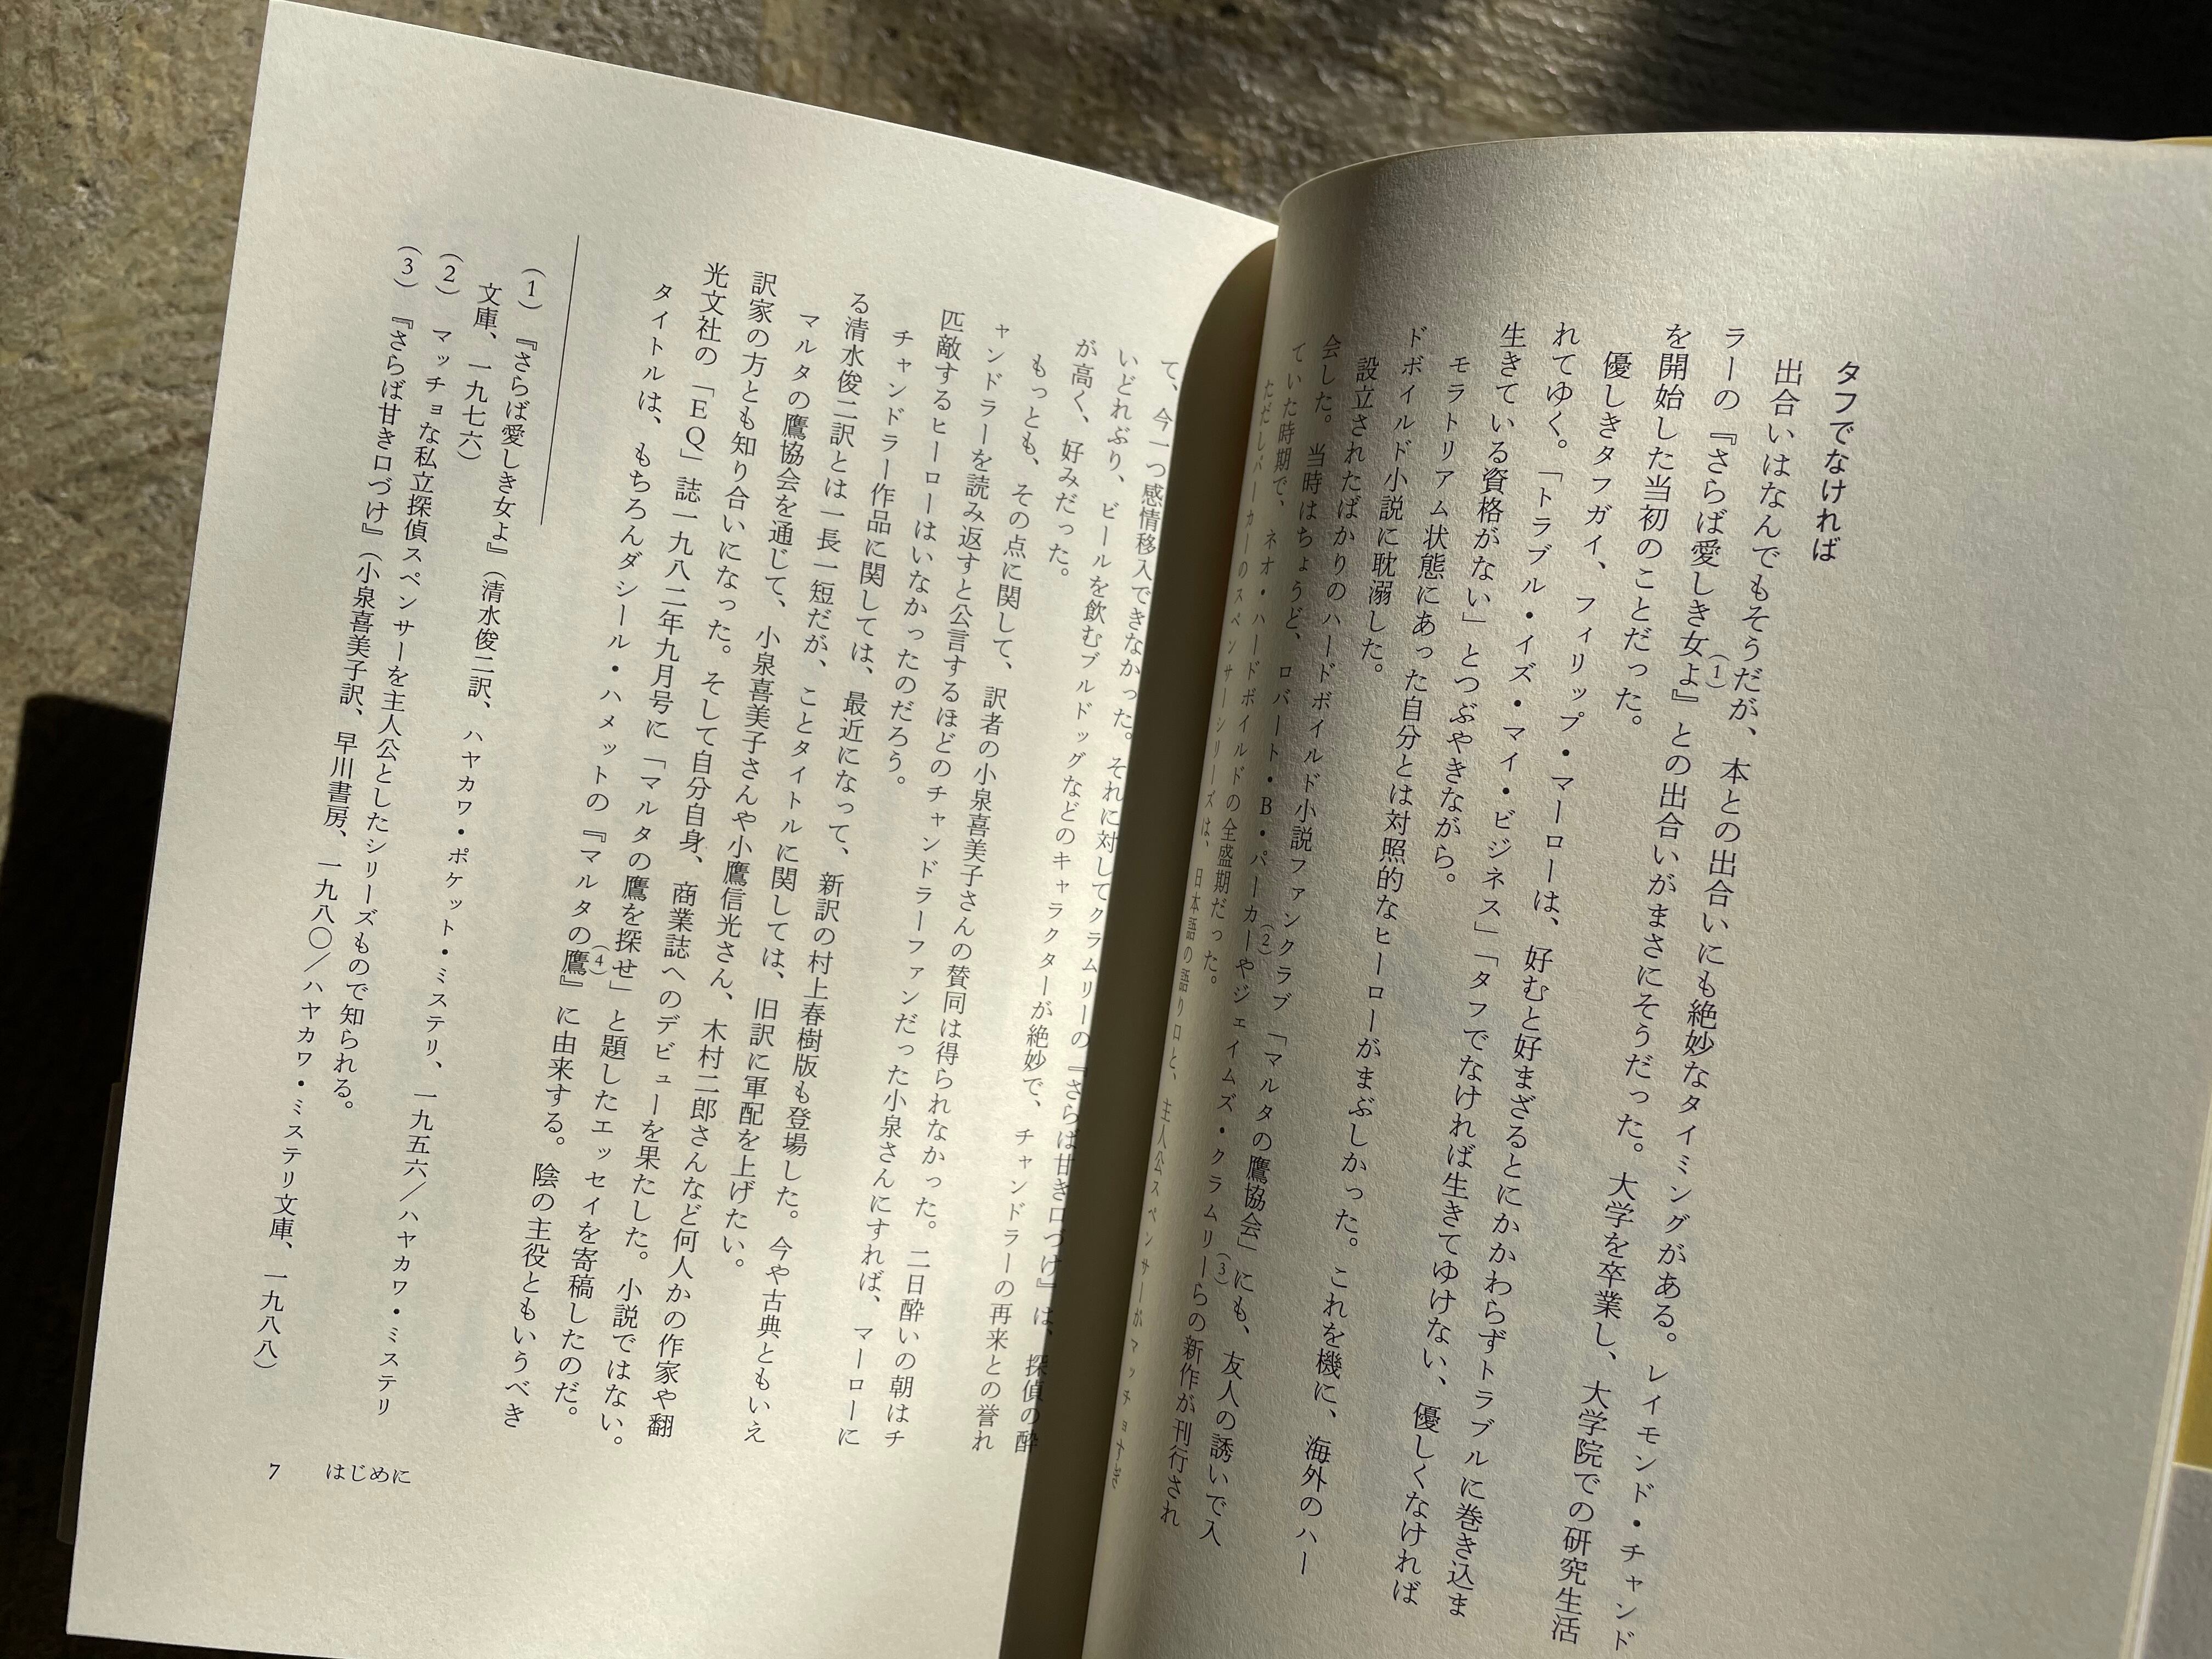 タフでなければ
出合いはなんでもそうだが、本との出合いにも絶妙なタイミングがある。レイモンド・チャンド
ラーの『さらば愛しき女よ』(1)との出合いがまさにそうだった。大学を卒業し、大学院での研究生活
を開始した当初のことだった。
優しきタフガイ、フィリップ・マーローは、好むと好まざるとにかかわらずトラブルに巻き込ま
れてゆく。「トラブル・イズ・マイ・ビジネス」「タフでなければ生きてゆけない、優しくなければ
生きている資格がない」とつぶやきながら。
モラトリアム状態にあった自分とは対照的なヒーローがまぶしかった。これを機に、海外のハー
ドボイルド小説に耽溺した。
設立されたばかりのハードボイルド小説ファンクラブ「マルタの鷹協会」にも、友人の誘いで入
会した。当時はちょうど、ロバート・B・パーカー(2)やジェイムズ・クラムリー(3)らの新作が刊行され
ていた時期で、ネオ・ハードボイルドの全盛期だった。
ただしパーカーのスペンサーシリーズは、日本語の語り口と、主人公スペンサーがマッチョすぎ
て、今一つ感情移入できなかった。それに対してクラムリーの『さらば甘き口づけ』は、探偵の酔
いどれぶり、ビールを飲むブルドッグなどのキャラクターが絶妙で、チャンドラーの再来との誉れ
が高く、好みだった。
もっとも、その点に関して、訳者の小泉喜美子さんの賛同は得られなかった。二日酔いの朝はチ
ャンドラーを読み返すと公言するほどのチャンドラーファンだった小泉さんにすれば、マーローに
匹敵するヒーローはいなかったのだろう。
チャンドラー作品に関しては、最近になって、新訳の村上春樹版も登場した。今や古典ともいえ
る清水俊二訳とは一長一短だが、ことタイトルに関しては、旧訳に軍配を上げたい。
マルタの鷹協会を通じて、小泉喜美子さんや小鷹信光さん、木村二郎さんなど何人かの作家や翻
訳家の方とも知り合いになった。そして自分自身、商業誌へのデビューを果たした。小説ではない。
光文社の「EQ」誌一九八二年九月号に「マルタの鷹を探せ」と題したエッセイを寄稿したのだ。
タイトルは、もちろんダシール・ハメットの『マルタの鷹』(4)に由来する。陰の主役ともいうべき
(1)『さらば愛しき女よ』(清水俊二訳、ハヤカワ・ポケット・ミステリ、一九五六/ハヤカワ・ミステリ
文庫、一九七六)
(2) マッチョな私立探偵スペンサーを主人公としたシリーズもので知られる。
(3)『さらば甘き口づけ』(小泉喜美子訳、早川書房、一九八〇/ハヤカワ・ミステリ文庫、一九八八)
7 はじめに